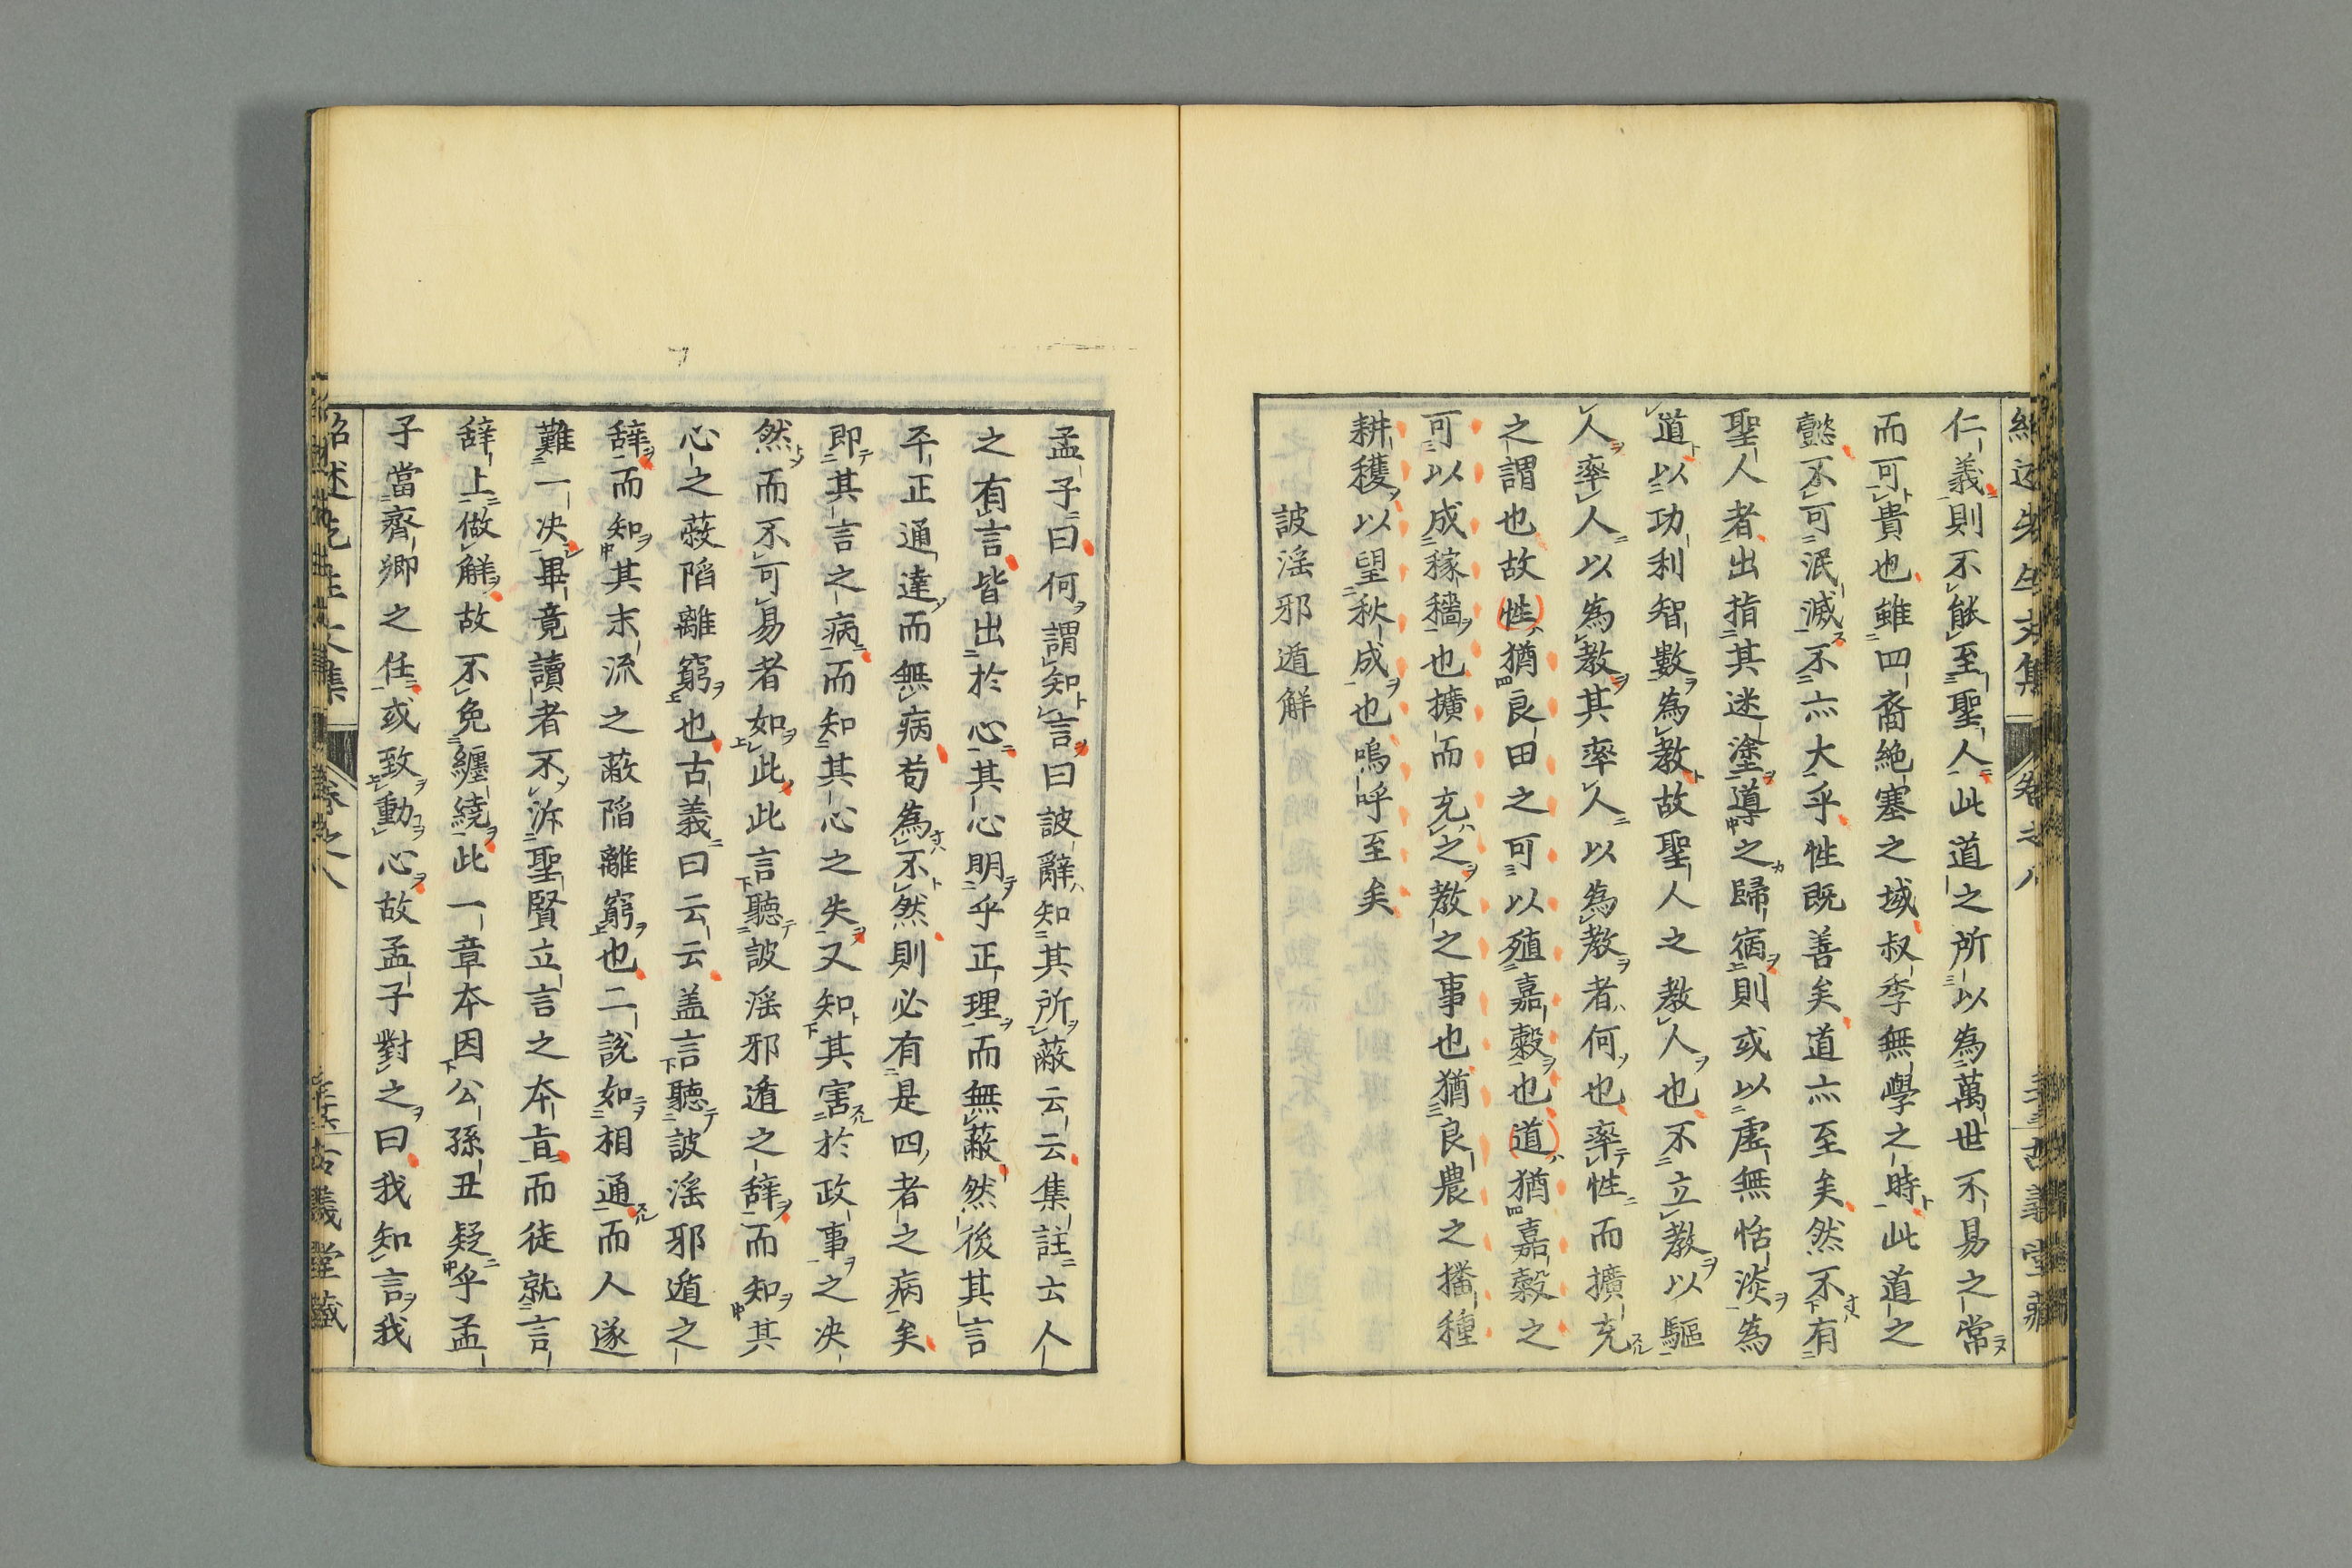 紹述先生文集
卷之八
古義堂藏
仁義則不能至聖人此道之所以為萬世不易之常
而可貴也雖四裔絶塞之域叔季無學之時此道之
懿不可泯滅不亦大乎性既善矣道亦至矣然不有
聖人者出指其迷塗導之歸宿則或以虛無恬淡為
道以功利智數為教故聖人之教人也不立教以驅
人率人以為教其率人以為教者何也率性而擴充
之謂也故性猶良田之可以殖嘉穀也道猶嘉穀之
可以成稼穡也擴而充之教之事也猶良農之播種
耕穫以望秋成也嗚呼至矣
詖淫邪遁解
孟子曰何謂知言曰詖辭知其所蔽云云集註云人
之有言皆出於心其心明乎正理而無蔽然後其言
平正通達而無病苟為不然則必有是四者之病矣
即其言之病而知其心之失又知其害於政事之决
然而不可易者如此此言聽詖淫邪遁之辞而知其
心之蔽陷離窮也古義曰云云盖言聽詖淫邪遁之
辞而知其末流之蔽陷離窮也二說如相通而人遂
難一决畢竟讀者不泝聖賢立言之本旨而徒就言
辞上做解故不免纏繞此一章本因公孫丑疑乎孟
子當齊卿之任或致動心故孟子對之曰我知言我
紹述先生文集
卷之八
古義堂藏